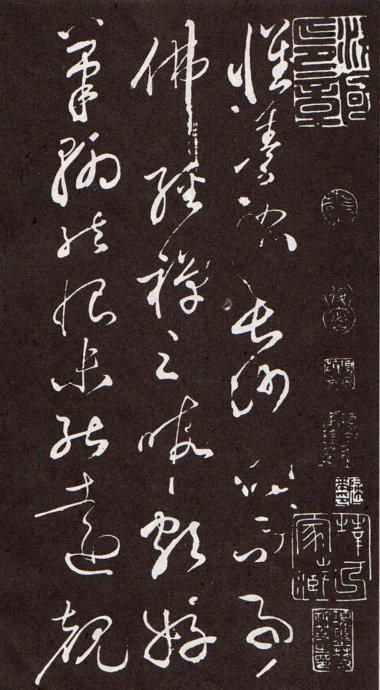 懷素家長沙幼而事
佛經禪之暇頗好
筆翰然恨未能遠覩